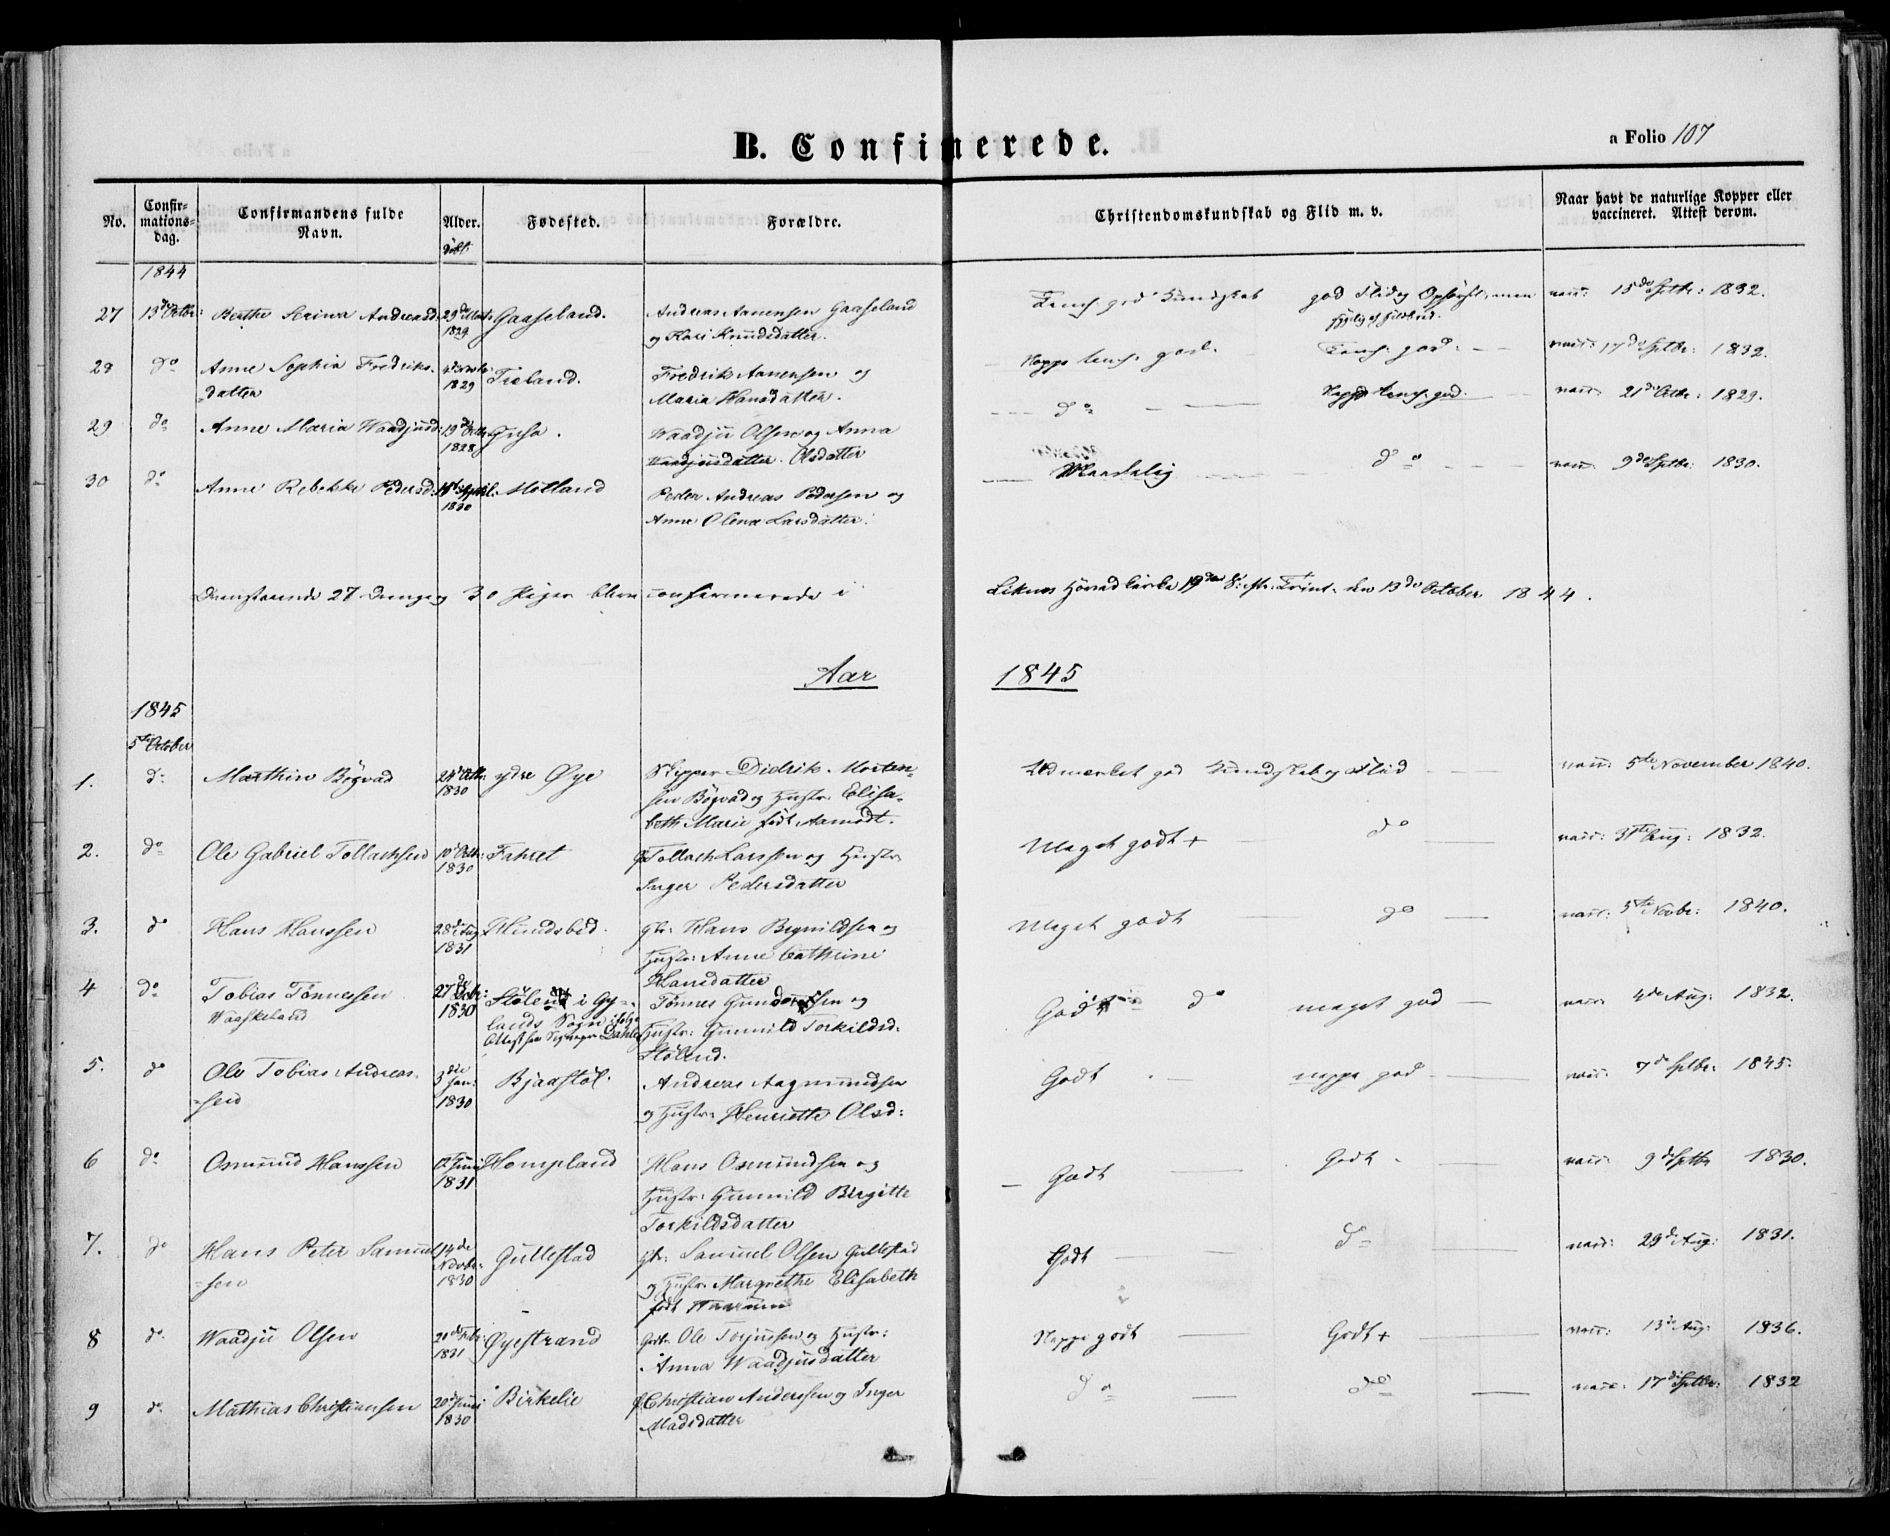 B. Confirmerede.
a Folio 107
No.
Confir-
mations-
dag.
Confirmandens fulde
Navn.
Alder.
født
Fødested.
Forældre.
Christendomskundskab og Flid m. v.
Naar havt de naturlige Kopper eller
vaccineret. Attest derom.
1844
27 13de Octbr: Berthe Serina Andreasd: 29de 1829 Gaaseland. Andreas Aanensen Gaaseland
og Kari Knudsdatter.
Temel. god Kundskab god Flid og Opførsel, men vacc: 15de Septbr: 1832.
28 do Anne Sophia Fredriks-
datter 1829 Træland. Fredrik Aanensen og
Maria Hansdatter.
Neppe temel. god. Temel. god. vacc: 17de Septbr: 1832.
29 do Anne Maria Waadjusd: 19de Octbr 1828 Gusa. Waadju Olsen og Anna
Waadjusdatter. Olsdatter
do Neppe temel. god. vacc: 21de Octbr: 1829.
30 do Anne Rebekke Pedersd: 18de April 1830 Mølland Peder Andreas Pedersen og
Anne Olena Larsdatter.
Maadelig do vacc: 9de Septbr: 1830.
Ovenstaaende 27 Drenge og 30 Piger bleve confirmerede i Liknes Hovedkirke 19de S. eftr. Trint. den 13de October 1844.
Aar 1845
1845
5te October
1. do Marthin Bøgvad 24de Octbr: 1830 ydre Øye Skipper Didrik Morten-
sen Bøgvad og Hustr: Elisa-
beth Marie født Aamodt.
Udmærket god Kundskab og Flid vacc: 5te November 1840.
2. do Ole Gabriel Tollachsen 10de Octbr: 1830 Fahret Tollach Larssen og Hustr:
Inger Pedersdatter
Meget godt + do vacc: 31te Aug: 1832.
3. do Hans Hanssen 28de Aug 1831 Hundsbed. Hans Regnildsen og
Hustr: Anne Cathrine
Hansdatter
Meget godt do vacc: 5te Novbr: 1840.
4 do Tobias Tønnessen
Waaskeland 27de 1830 Stølend i Gy-
lands Sogn ifølge
Attest fra Sognepr Dahle
Tønnes Gundersen og
Hustr: Gunnild Torkildsd:
Stølend.
Godt do meget god vacc: 4de Aug: 1832.
5. do Ole Tobias Andreas-
sen 3die Jan: 1830 Bjaastøl. Andreas Aagmundsen
og Hustr: Henriette Olsd:
Godt neppe god vacc: 7de Septbr: 1845.
6 do Osmund Hanssen 12te Juni 1831 Hompland Hans Osmundsen og
Hustr: Gunnild Birgitte
Torkildsdatter
Godt Godt vacc: 9de Septbr 1830.
7. do Hans Peter Samuel-
sen 14de Novbr: 1830 Gullestad Samuel Olsen Gullestad
og Hustr: Margrethe Elisabeth
født
Godt do vacc: 29de Aug: 1831.
8 do Waadju Olsen 20de Febr: 1831 Øyestrand Ole Torjussen og Hustr:
Anna Waadjusdatter
Neppe godt Godt + vacc: 13de Aug: 1836.
9 do Mathias Christiansen 20de Juni 1830 Birkelie Christian Anderssen og Inger
Madsdatter
do do vacc: 17de Septbr: 1832